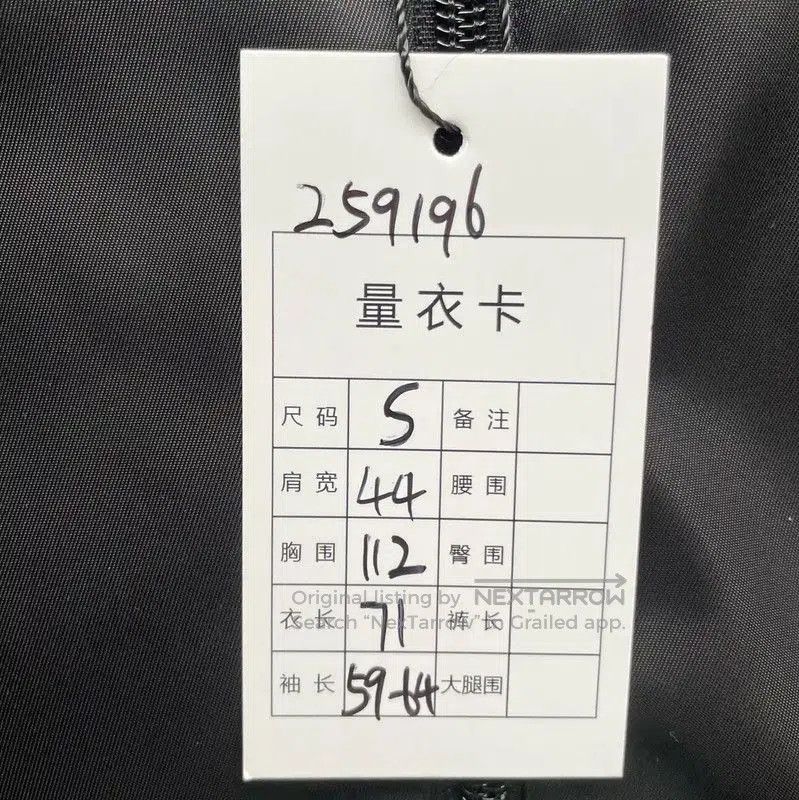 259196
量衣卡
尺码 S 备注
肩宽 44 腰围
胸围 112 臀围
Original listing by NEXTARROW
衣长 71 裤长
Search "NexTarrow" to Grailed app.
袖长 59-64 大腿围